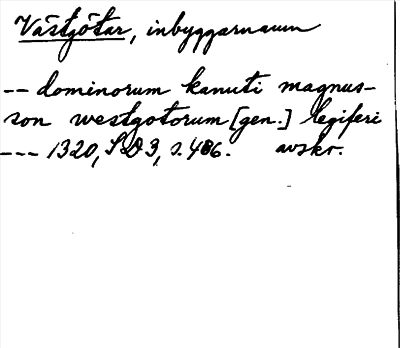 Västgötar, inbyggarnamn
-- dominorum kanuti magnus-
son westgotorum [gen.] legiferi
--- 1320, SD3, s. 486. avskr.